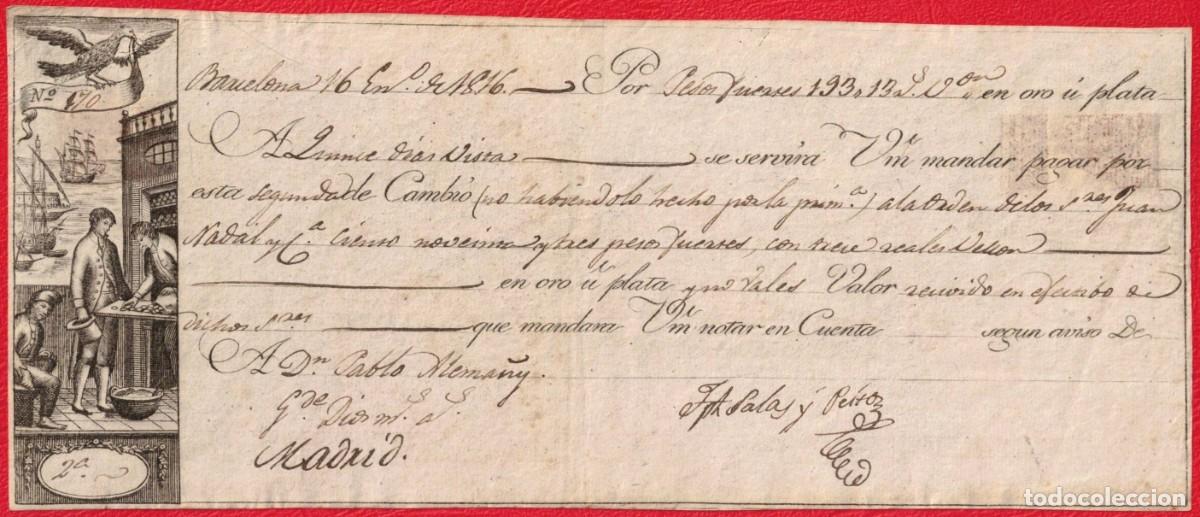 Nº 170
Barcelona 16 En.º de 1816. Por Pesos fuertes 193,, 13 r.s V.on en oro ú plata
A Quince dias Vista se servirá Vm̃ mandar pagar por
esta segunda de Cambio (no habiendolo hecho por la prim.ª) a la orden de los S.res Juan
Nadal y C.ª Ciento noventa y tres pesos fuertes, con trece reales Vellon
en oro ú plata y no Vales Valor recivido en efectibo de
dichos S.res que mandara Vm̃ notar en Cuenta segun aviso De
A Dn. Pablo Alemañy.
G.de Dios m.s a.s
Jph Salas y
Madrid.
2ª
todocoleccion